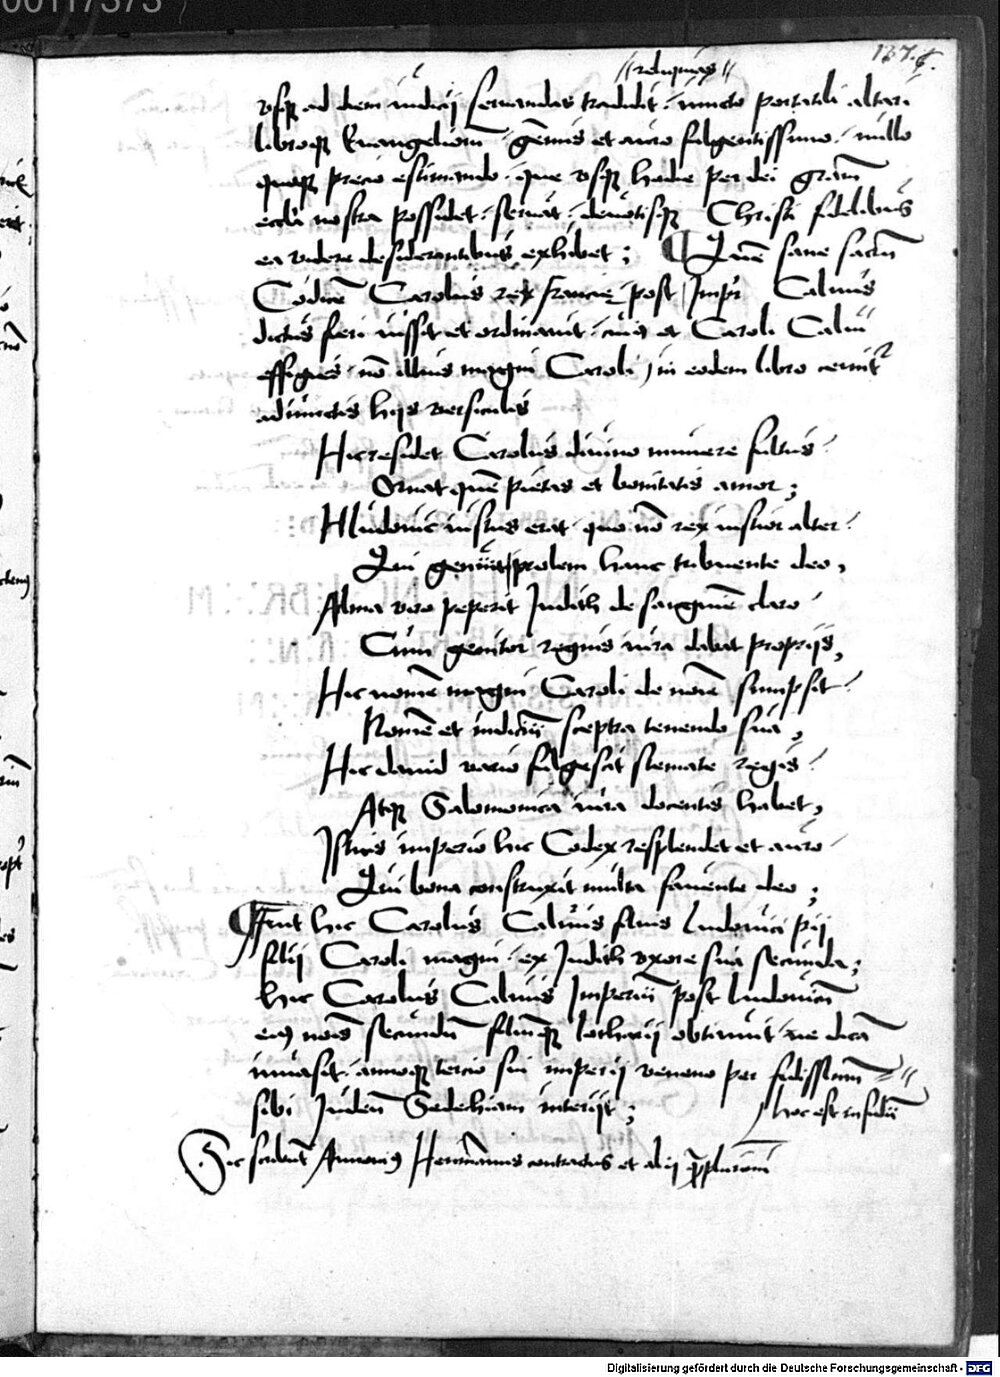 00117373
137. 6.
"reliquias"
vsq; ad diem iudicij seruandas tradidit, iuncto portatili altari
libroq; Euangeliorū, gēmis et auro fulgentissimo, nullo
quoq; precio estimando, que vsq; hodie per dei grām
eccłia nostra possidet, seruat, deuotisq; Christi fidelibus
ea videre desiderantibus exhibet; ¶ Quē sane sacrū
Codicē Carolus rex francie, post Impr Caluus
dictus fieri iussit et ordinauit, cuiꝰ et Caroli Calui
effigies, nō illius magni Caroli, in eodem libro cernitr
adiunctis hijs versiculis
Hic residet Carolus diuino munere fultus
Ornat quē pietas et bonitatis amor;
Hludouic iustus erat, quo nō rex iustior alter
Qui genuit prolem hanc tribuente deo,
Alma viro peperit Judith de sanguinē claro
Cum genitor regnis iura dabat proprijs,
Hic nomē magni Caroli de noīe sumpsit
Nomē et indiciū sceptra tenendo sua,
Hic dauid vario fulgescit stemate regis
Atq; Salomonica iura docentis habet,
Istius imperio hic Codex resplendet et auro
Qui bona construxit multa fauente deo;
¶ Fuit hic Carolus Caluus filius Ludouici pij
filij Caroli magni, ex Judith vxore sua secunda;
hic Carolus Caluus Imperiū post Ludouicū
eiꝰ noīs secundū filiūq; lotharij obtinuit, ne dicā
inuasit, annoq; tercio sui imperij veneno per fidissimū
sibi Judeū Sedechiam interijt; / hoc est infidū
Sic scribunt Hermānus contractus et alij
Digitalisierung gefördert durch die Deutsche Forschungsgemeinschaft - DFG